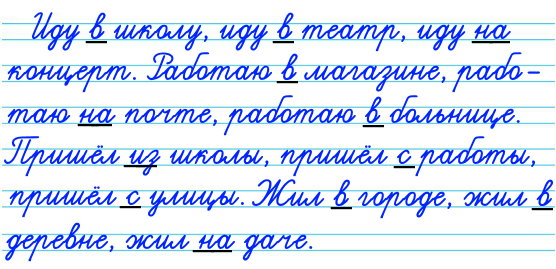 Иду в школу, иду в театр, иду на
концерт. Работаю в магазине, рабо-
таю на почте, работаю в больнице.
Пришёл из школы, пришёл с работы,
пришёл с улицы. Жил в городе, жил в
деревне, жил на даче.